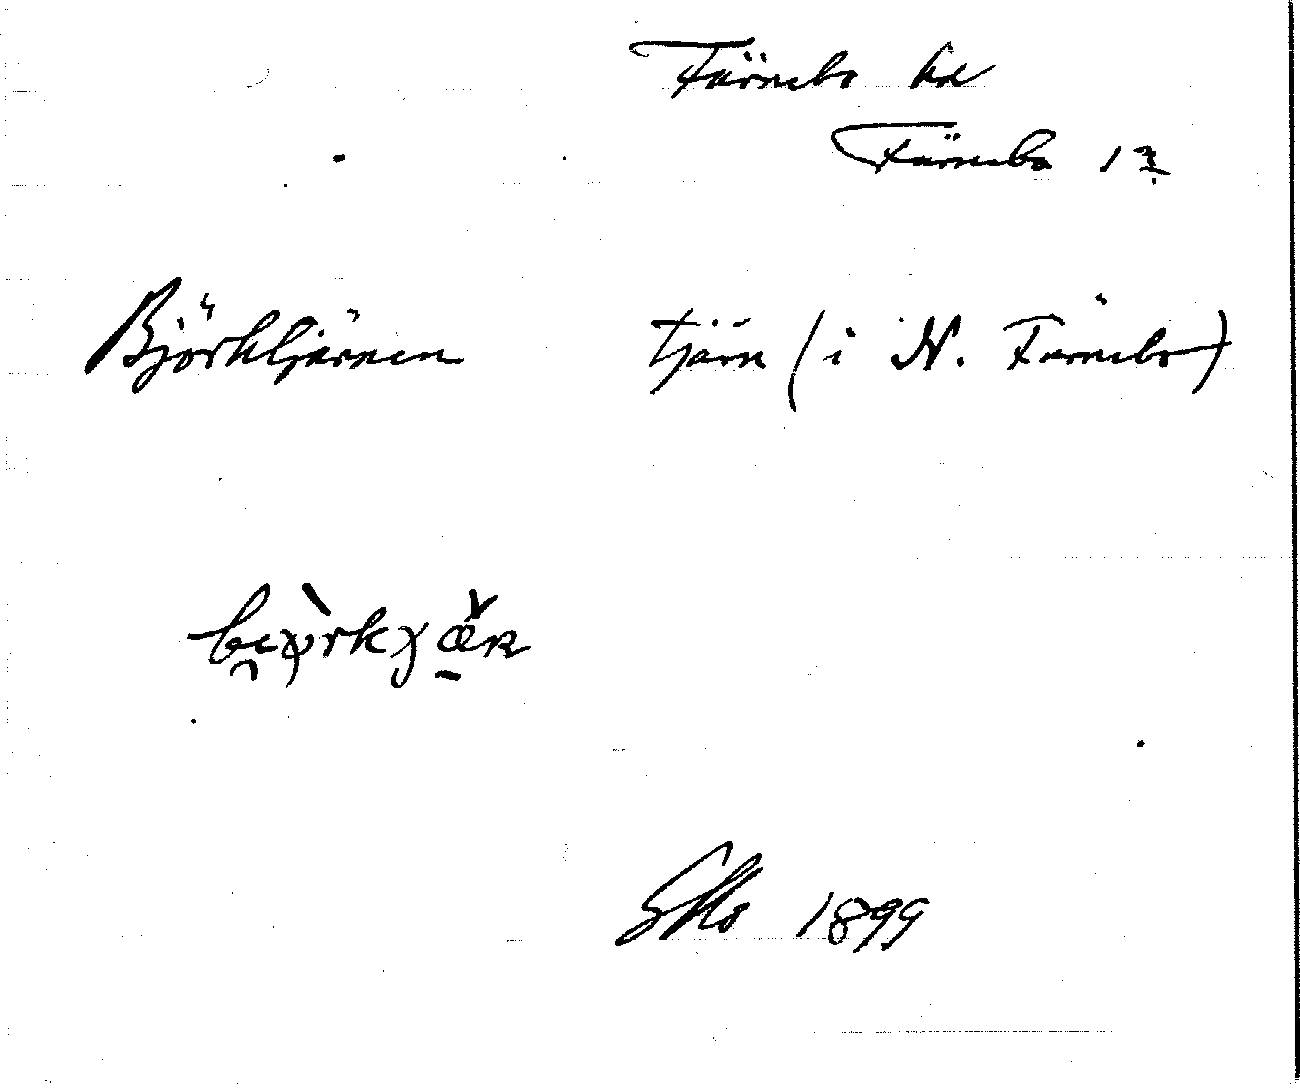 Färnebo hd
Färnebo 12
Björktjärnen tjärn (i N. Färnebo)
Sklo 1899